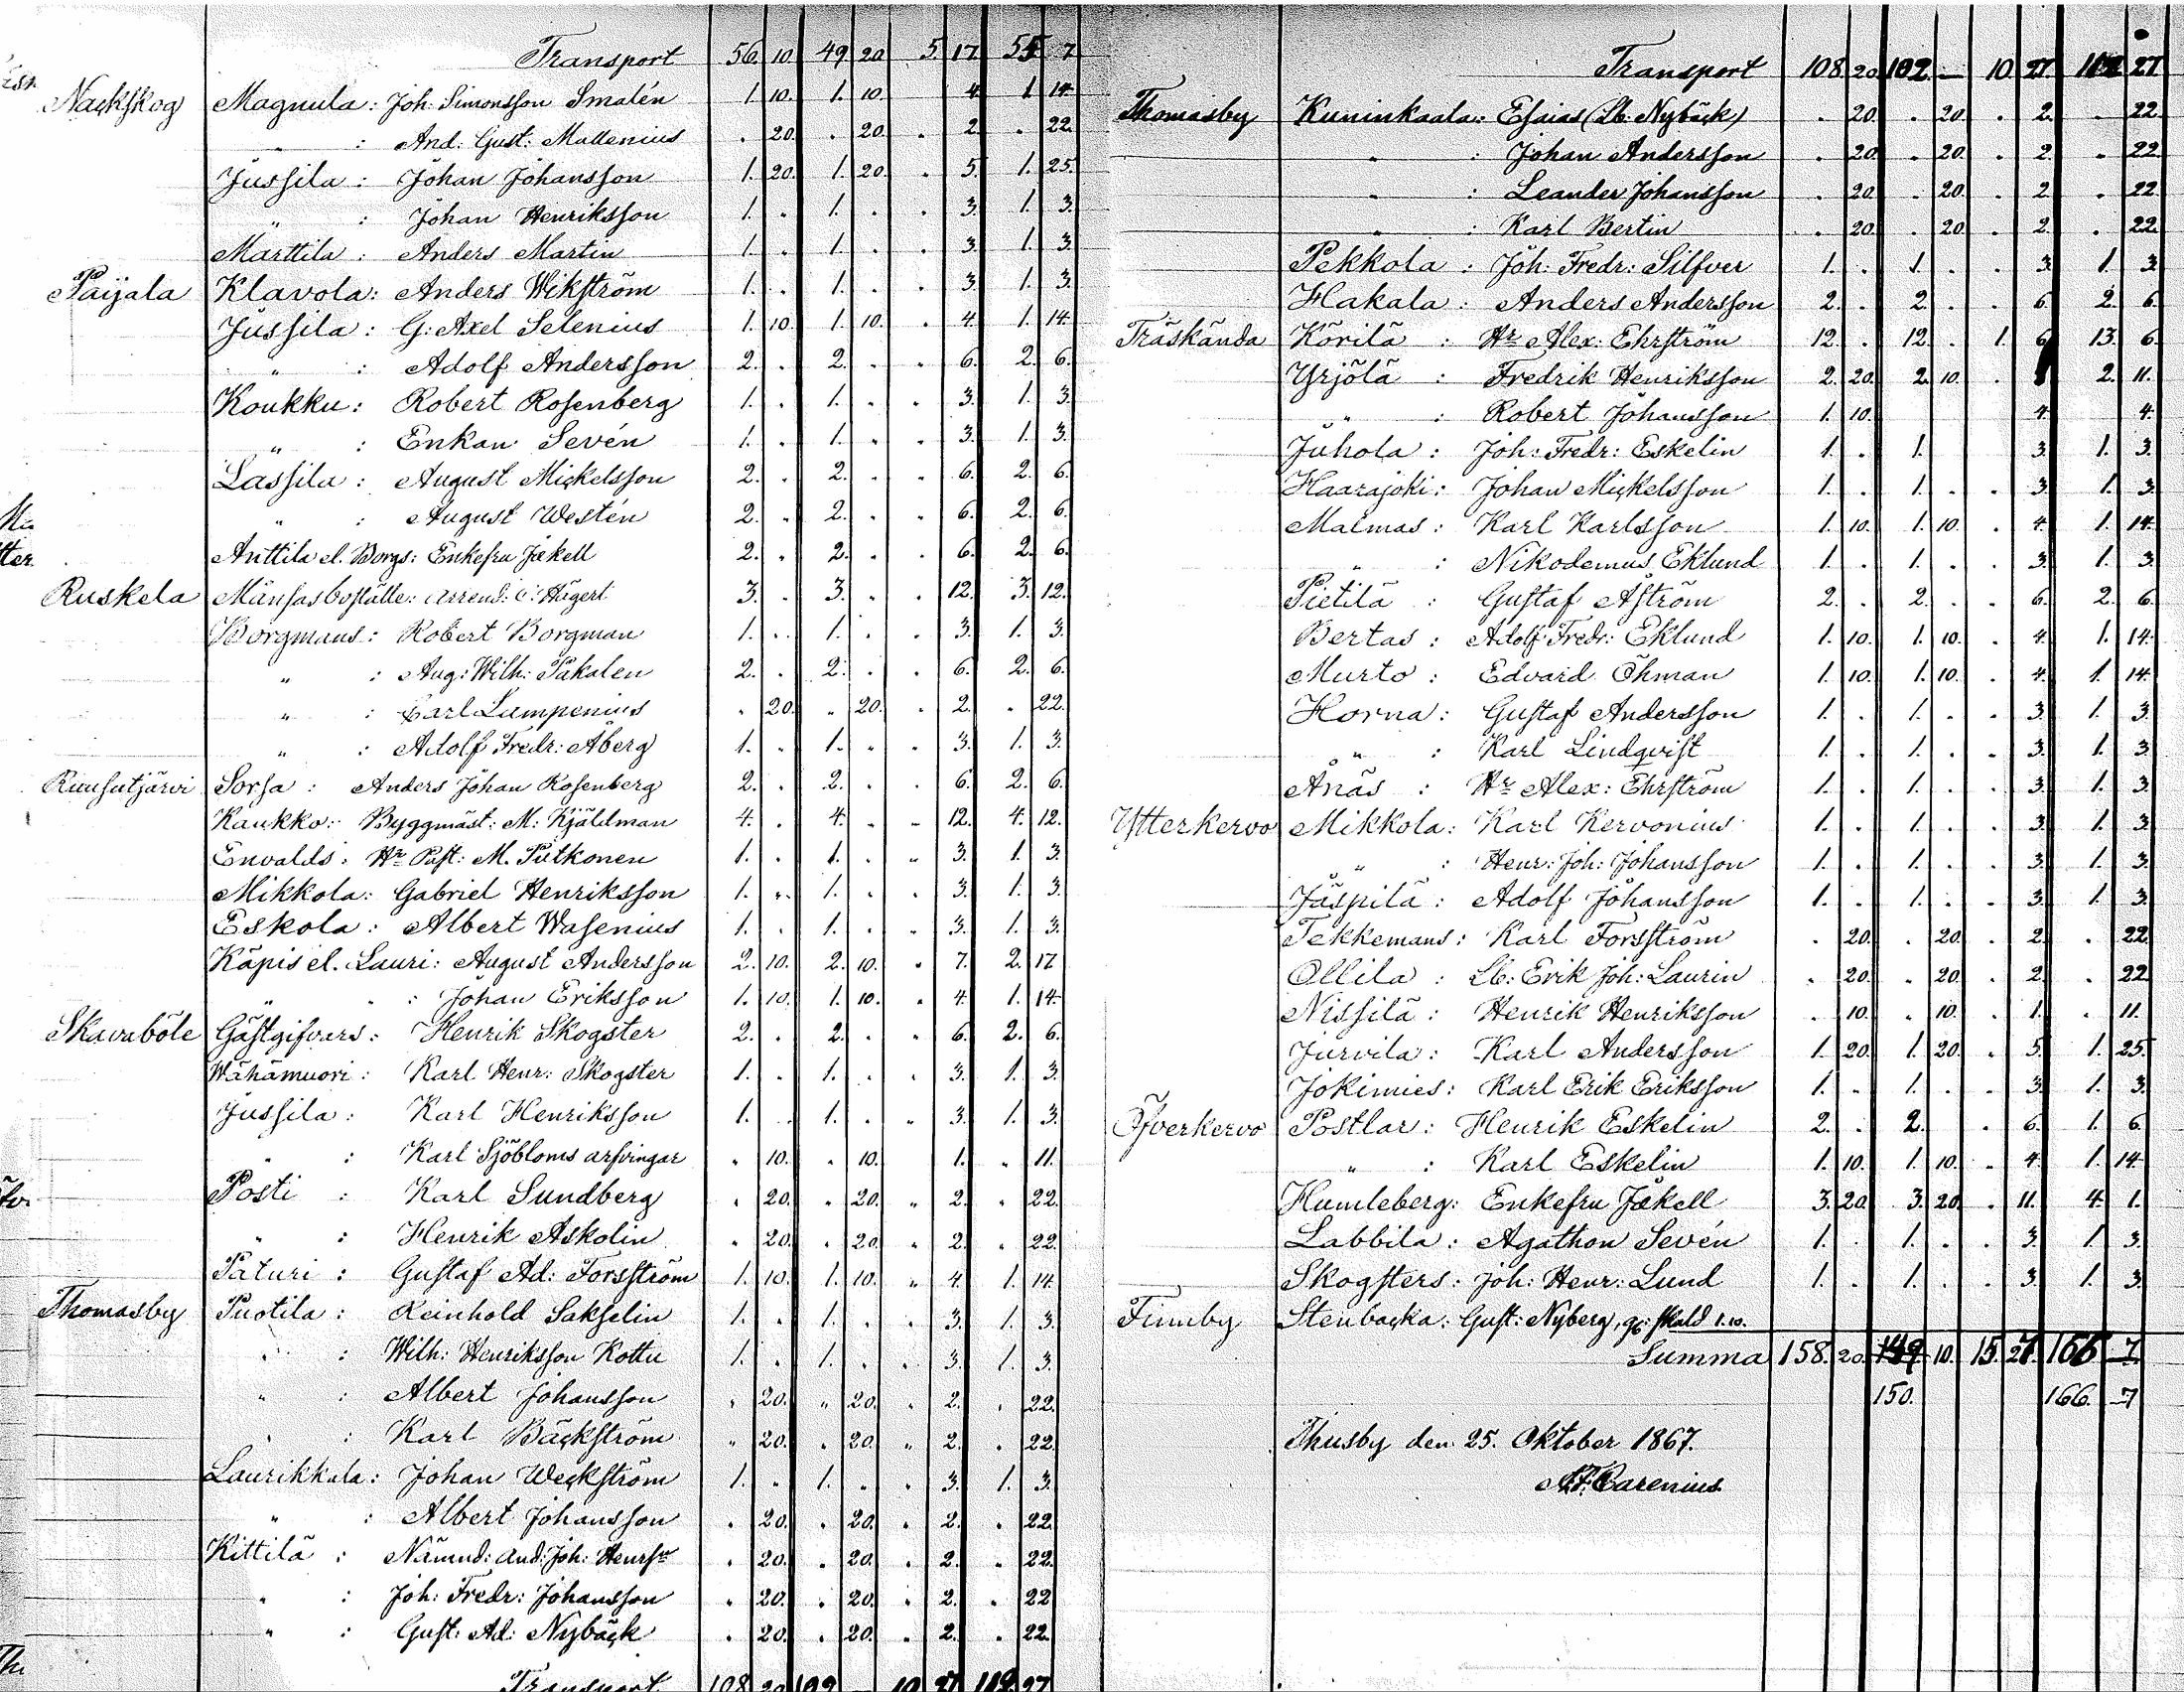 Transport 56. 10. 49 20 5. 17. 55 7
Nackskog Magnula: Joh: Simonsson Smalén 1. 10. 1. 10. 4. 1. 14.
" : And: Gust: Mattenius . 20. . 20. . 2. . 22.
Jussila: Johan Johansson 1. 20. 1. 20. . 5. 1. 25.
" : Johan Henriksson 1. . 1. . . 3. 1. 3.
Marttila: Anders Martin 1. . 1. . . 3. 1. 3.
Paijala Klavola: Anders Wikström 1. . 1. . . 3. 1. 3.
Jussila: G: Axel Selenius 1. 10. 1. 10. . 4. 1. 14.
" : Adolf Andersson 2. . 2. . . 6. 2. 6.
Koukku: Robert Rosenberg 1. . 1. . . 3. 1. 3.
" : Enkan Sevén 1. . 1. . . 3. 1. 3.
Lassila: August Mickelsson 2. . 2. . . 6. 2. 6.
" : August Westén 2. . 2. . . 6. 2. 6.
Anttila el. Borgs: Enkefru Jækell 2. . 2. . . 6. 2. 6.
Ruskela Månsasboställe: arrend: C: Hägert 3. . 3. . . 12. 3. 12.
Borgmans: Robert Borgman 1. . 1. . . 3. 1. 3.
" : Aug: Wilh: Pakalen 2. . 2. . . 6. 2. 6.
" : Carl Lampenius . 20. . 20. . 2. . 22.
" : Adolf Fredr: Åberg 1. . 1. . . 3. 1. 3.
Ruusutjärvi Sorsa: Anders Johan Rosenberg 2. . 2. . . 6. 2. 6.
Kaukko: Byggmäst: M: Kjäldman 4. . 4. . . 12. 4. 12.
Envalds: Hr Past: M. Putkonen 1. . 1. . . 3. 1. 3.
Mikkola: Gabriel Henriksson 1. . 1. . . 3. 1. 3.
Eskola: Albert Wasenius 1. . 1. . . 3. 1. 3.
Käpis el. Lauri: August Andersson 2. 10. 2. 10. . 7. 2. 17
" : Johan Eriksson 1. 10. 1. 10. . 4. 1. 14.
Skavaböle Gästgifvars: Henrik Skogster 2. . 2. . . 6. 2. 6.
Wähämuori: Karl Henr: Skogster 1. . 1. . . 3. 1. 3.
Jussila: Karl Henriksson 1. . 1. . . 3. 1. 3.
" : Karl Sjöbloms arfvingar . 10. . 10. 1. . 11.
Posti : Karl Sundberg . 20. . 20. . 2. . 22.
" : Henrik Askolin . 20. . 20. . 2. . 22.
Paturi: Gustaf Ad: Forsström 1. 10. 1. 10. . 4. 1. 14.
Thomasby Puotila: Reinhold Sakselin 1. . 1. . . 3. 1. 3.
" : Wilh: Henriksson Kottu 1. . 1. . . 3. 1. 3.
" : Albert Johansson . 20. . 20. . 2. . 22.
" : Karl Bäckström . 20. . 20. . 2. . 22.
Laurikkala: Johan Weckström 1. . 1. . . 3. 1. 3.
" : Albert Johansson . 20. . 20. . 2. . 22.
Kittilä: Nämnd: And: Joh: Henrsn . 20. . 20. . 2. . 22.
" : Joh: Fredr: Johansson . 20. . 20. . 2. . 22
" : Gust: Ad: Nybäck . 20. . 20. . 2. . 22
Transport 108 20 102 — 10 27 112 27
Transport 108. 20. 102 — 10. 27. 112 27
Thomasby Kuninkaala: Esaias (Lb: Nybäck) . 20. . 20. . 2. . 22.
" : Johan Andersson . 20. . 20. . 2. . 22.
" : Leander Johansson . 20. . 20. . 2 . 22.
" : Karl Bertin . 20. . 20. . 2. . 22.
Pekkola: Joh: Fredr: Silfver 1. . 1. . . 3. 1. 3.
Hakala: Anders Andersson 2. . 2. . . 6. 2. 6.
Träskända Körilä : Hr Alex: Ehrström 12. . 12. . 1. 6. 13. 6.
Yrjölä : Fredrik Henriksson 2. 20. 2. 10. . 8 2. 11.
" : Robert Johansson 1. 10. 4. 4.
Juhola: Joh: Fredr: Eskelin 1. . 1. 3. 1. 3.
Haarajoki: Johan Mickelsson 1. . 1. . . 3. 1. 3.
Malmas: Karl Karlsson 1. 10. 1. 10. . 4. 1. 14.
" : Nikodemus Eklund 1. . 1. . . 3. 1. 3.
Pietilä : Gustaf Åström 2. . 2. . . 6. 2. 6.
Bertas: Adolf Fredr: Eklund 1. 10. 1. 10. . 4. 1. 14.
Murto: Edvard Öhman 1. 10. 1. 10. . 4. 1. 14.
Horna: Gustaf Andersson 1. . 1. . . 3. 1. 3.
" : Karl Lindqvist 1. . 1. . . 3. 1. 3.
Ånäs : Hr Alex: Ehrström 1. . 1. . . 3. 1. 3.
Ytterkervo Mikkola: Karl Kervonius 1. . 1. . . 3. 1. 3.
" : Henr: Joh: Johansson 1. . 1. . . 3. 1. 3.
Jäspilä: Adolf Johansson 1. . 1. . . 3. 1. 3.
Tekkemans: Karl Forsström . 20. . 20. . 2. . 22.
Ollila : Lb: Erik Joh: Laurin . 20. . 20. . 2. . 22
Nissilä : Henrik Henriksson . 10. . 10. . 1. . 11.
Jurvila: Karl Andersson 1. 20. 1. 20. . 5. 1. 25.
Jokimies: Karl Erik Eriksson 1. . 1. . . 3. 1. 3.
Öfverkervo Postlar: Henrik Eskelin 2. . 2. . 6. 1. 6.
" : Karl Eskelin 1. 10. 1. 10. . 4. 1. 14.
Humleberg: Enkefru Jækell 3. 20. 3. 20. . 11. 4. 1.
Labbila: Agathon Sevén 1. . 1. . . 3. 1. 3.
Skogsters: Joh: Henr: Lund 1. . 1. . . 3. 1. 3.
Finnby Stenbacka: Gust: Nyberg, skald 1.10.
Summa 158. 20. 149 10. 15. 27. 166 7.
150. 166. 7
Thusby den 25. Oktober 1867.
Carenius